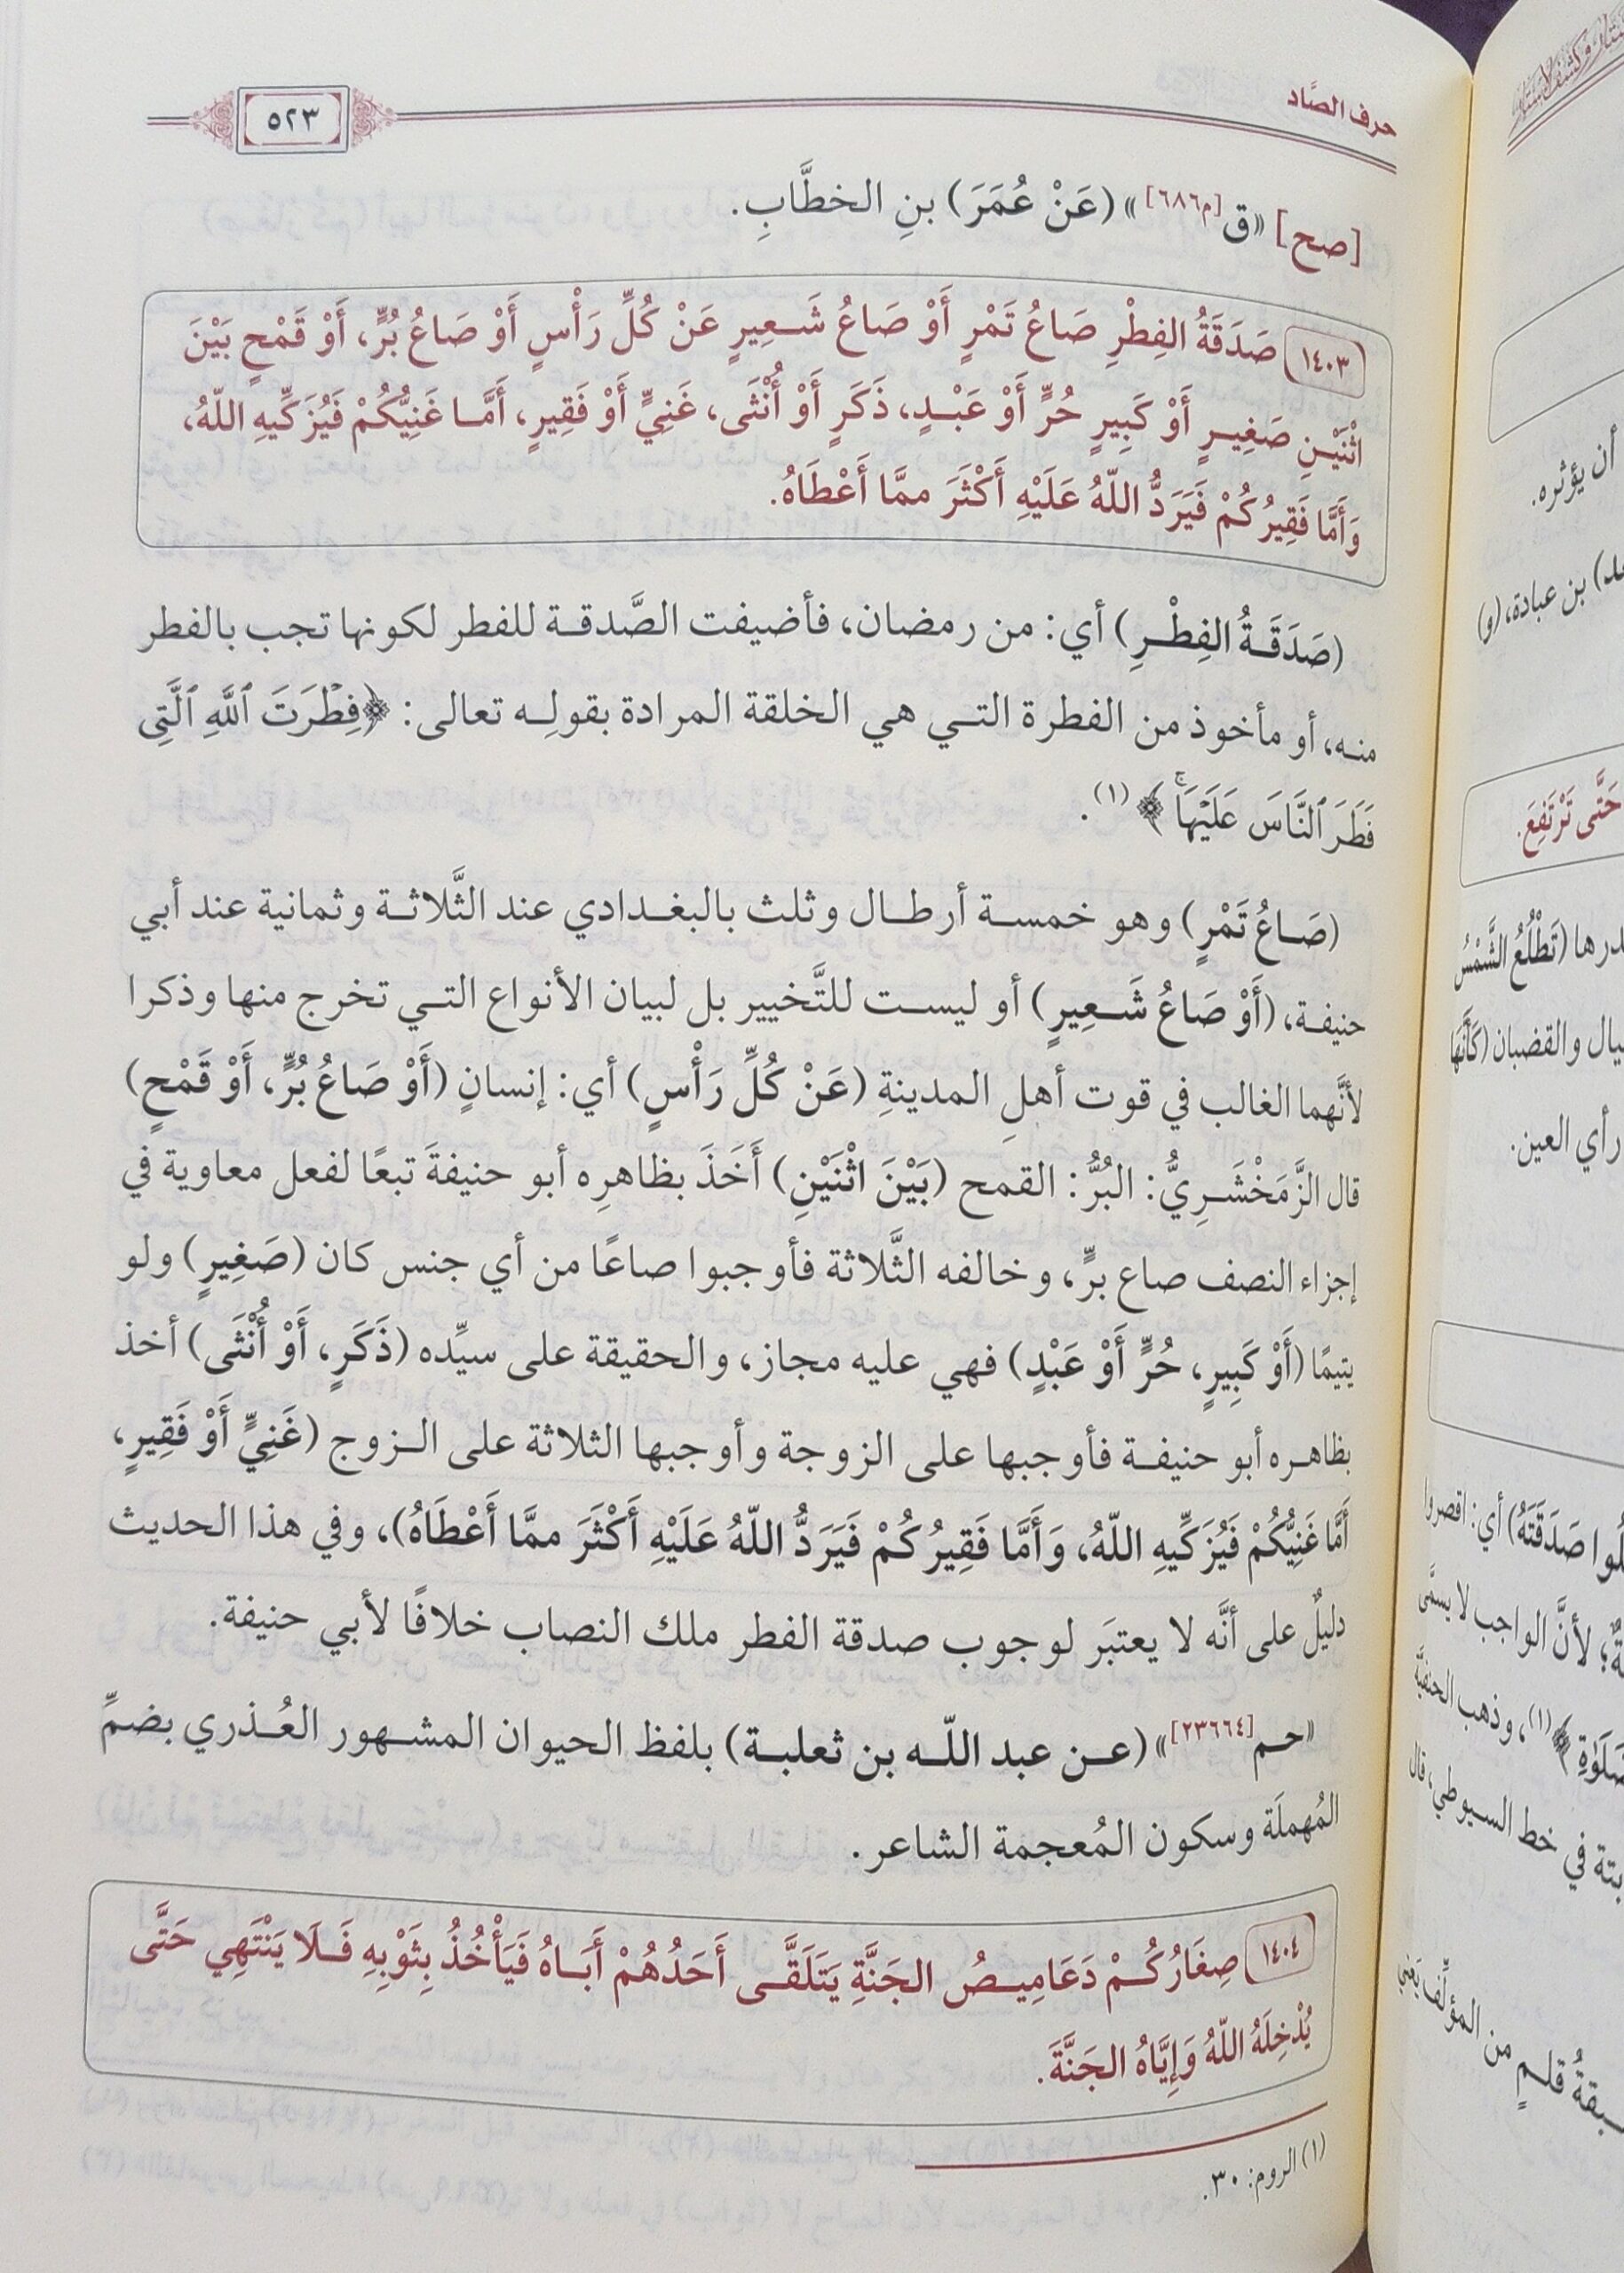 حرف الصَّاد
٥٢٣
[صح] «ق[م٦٨٦]» (عَنْ عُمَرَ) بنِ الخطَّابِ.
١٤٠٣ صَدَقَةُ الفِطْرِ صَاعُ تَمْرٍ أَوْ صَاعُ شَعِيرٍ عَنْ كُلِّ رَأْسٍ أَوْ صَاعُ بُرٍّ، أَوْ قَمْحٍ بَيْنَ
اثْنَيْنِ صَغِيرٍ أَوْ كَبِيرٍ حُرٍّ أَوْ عَبْدٍ، ذَكَرٍ أَوْ أُنْثَى، غَنِيٍّ أَوْ فَقِيرٍ، أَمَّا غَنِيُّكُمْ فَيُزَكِّيهِ اللّهُ،
وَأَمَّا فَقِيرُكُمْ فَيَرَدُّ اللّهُ عَلَيْهِ أَكْثَرَ ممَّا أَعْطَاهُ.
(صَدَقَةُ الفِطْرِ) أي: من رمضان، فأضيفت الصَّدقة للفطر لكونها تجب بالفطر
منه، أو مأخوذ من الفطرة التي هي الخلقة المرادة بقولِه تعالى: ﴿فِطْرَتَ ٱللَّهِ ٱلَّتِى
فَطَرَ ٱلنَّاسَ عَلَيْهَاۚ﴾(١).
(صَاعُ تَمْرٍ) وهو خمسة أرطال وثلث بالبغدادي عند الثَّلاثة وثمانية عند أبي
حنيفة، (أَوْ صَاعُ شَعِيرٍ) أو ليست للتَّخيير بل لبيان الأنواع التي تخرج منها وذكرا
لأنَّهما الغالب في قوت أهلِ المدينةِ (عَنْ كُلِّ رَأْسٍ) أي: إنسانٍ (أَوْ صَاعُ بُرٍّ، أَوْ قَمْحٍ)
قال الزَّمَخْشَرِيُّ: البُرُّ: القمح (بَيْنَ اثْنَيْنِ) أَخَذَ بظاهرِه أبو حنيفةَ تبعًا لفعل معاوية في
إجزاء النصف صاع برٍّ، وخالفه الثَّلاثة فأوجبوا صاعًا من أي جنس كان (صَغِيرٍ) ولو
يتيمًا (أَوْ كَبِيرٍ، حُرٍّ أَوْ عَبْدٍ) فهي عليه مجاز، والحقيقة على سيِّده (ذَكَرٍ، أَوْ أُنْثَى) أخذ
بظاهره أبو حنيفة فأوجبها على الزوجة وأوجبها الثلاثة على الزوج (غَنِيٍّ أَوْ فَقِيرٍ،
أَمَّا غَنِيُّكُمْ فَيُزَكِّيهِ اللّهُ، وَأَمَّا فَقِيرُكُمْ فَيَرَدُّ اللّهُ عَلَيْهِ أَكْثَرَ ممَّا أَعْطَاهُ)، وفي هذا الحديث
دليلٌ على أنَّه لا يعتبَر لوجوب صدقة الفطر ملك النصاب خلافًا لأبي حنيفة.
«حم[٢٣٦٦٤]» (عن عبد اللّه بن ثعلبة) بلفظ الحيوان المشهور العُذري بضمِّ
المُهملَة وسكون المُعجمة الشاعر.
١٤٠٤ صِغَارُكُمْ دَعَامِيصُ الجَنَّةِ يَتَلَقَّى أَحَدُهُمْ أَبَاهُ فَيَأْخُذُ بِثَوْبِهِ فَلَا يَنْتَهِي حَتَّى
يُدْخِلَهُ اللّهُ وَإِيَّاهُ الجَنَّةَ.
(١) الروم: ٣٠.
أن يؤثره.
بن عبادة، (و)
حَتَّى تَرْتَفِعَ.
(تَطْلُعُ الشَّمْسُ
والقضبان (كَأَنَّهَا
رأي العين.
صَدَقَتَهُ) أي: اقصروا
لأنَّ الواجب لا يسمَّى
﴾(١)، وذهب الحنفيَّة
في خط السيوطي، قال
من المؤلِّف يَعني
قلمٍ